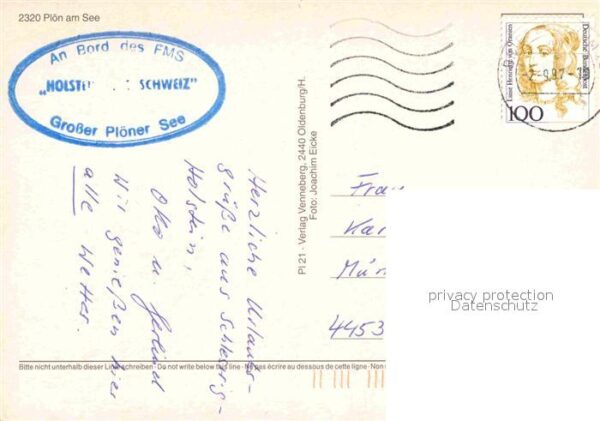 2320 Plön am See
An Bord des FMS
„HOLSTEI SCHWEIZ"
Großer Plöner See
Herzliche Urlaubs-
grüße aus Schleswig-
Holstein,
Wir genießen hier
alle Wetter.
Pl 21 · Verlag Venneberg, 2440 Oldenburg/H.
Foto: Joachim Eicke
Luise Henriette von Oranien
Deutsche Bundespost
100
Frau
Kar
Mün
4453
privacy protection
Datenschutz
Bitte nicht unterhalb dieser Linie schreiben · Do not write below this line · Ne pas écrire au dessous de cette ligne · Non